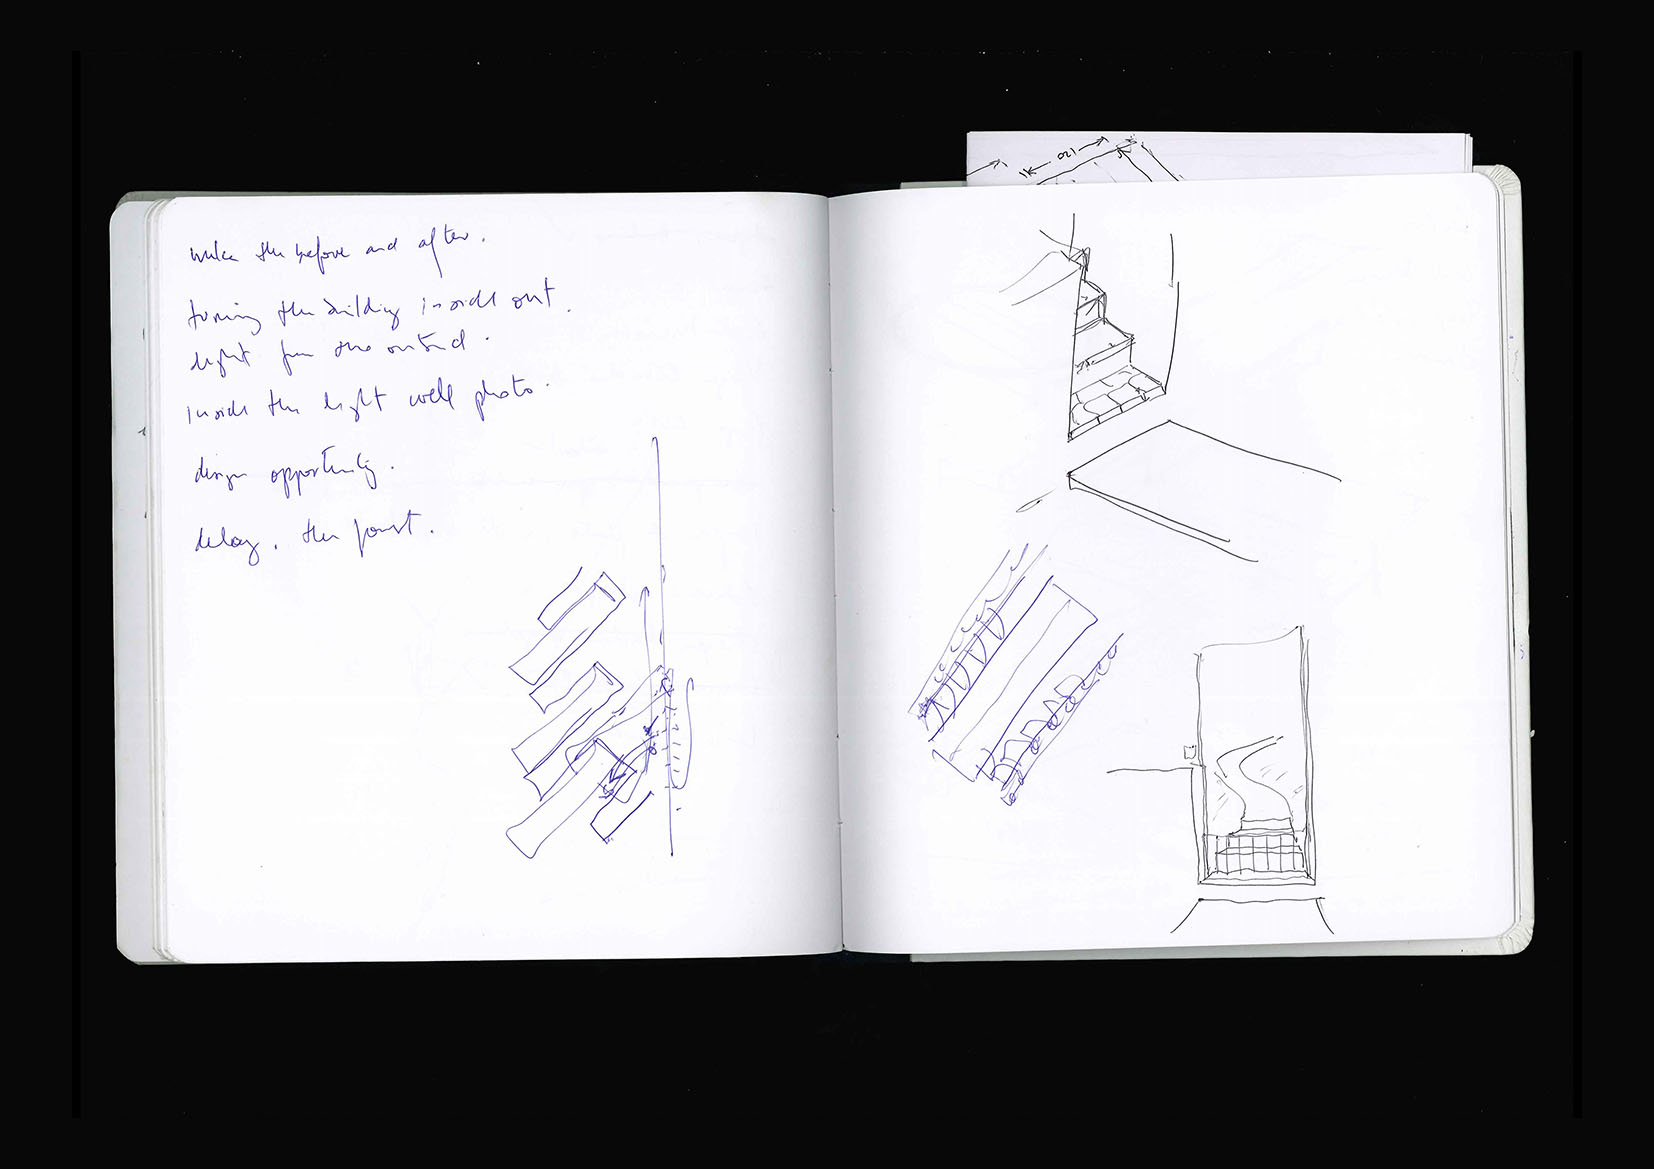 120
the before and after.
turning the building inside out.
light from the outside.
inside the light well photo.
design opportunity.
delay. the